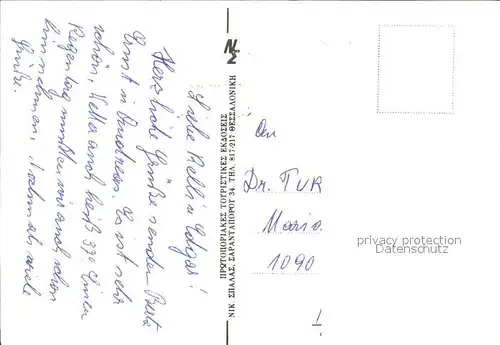 Liebe Nelli u. Edgar!
Herzliche Grüße senden Beate
Ernst u. Andreas. Es ist sehr
schön, Wetter auch heiß 33° Einen
Regentag mußten wir auch schon
hinnehmen. Nochmals viele
Grüße.
ΠΡΩΤΟΠΟΡΙΑΚΕΣ ΤΟΥΡΙΣΤΙΚΕΣ ΕΚΔΟΣΕΙΣ
ΝΙΚ. ΣΠΑΛΑΣ, ΣΑΡΑΝΤΑΠΟΡΟΥ 34, ΤΗΛ. 817-217 ΘΕΣΣΑΛΟΝΙΚΗ
An
Dr. TUR
Maria
1090
privacy protection
Datenschutz